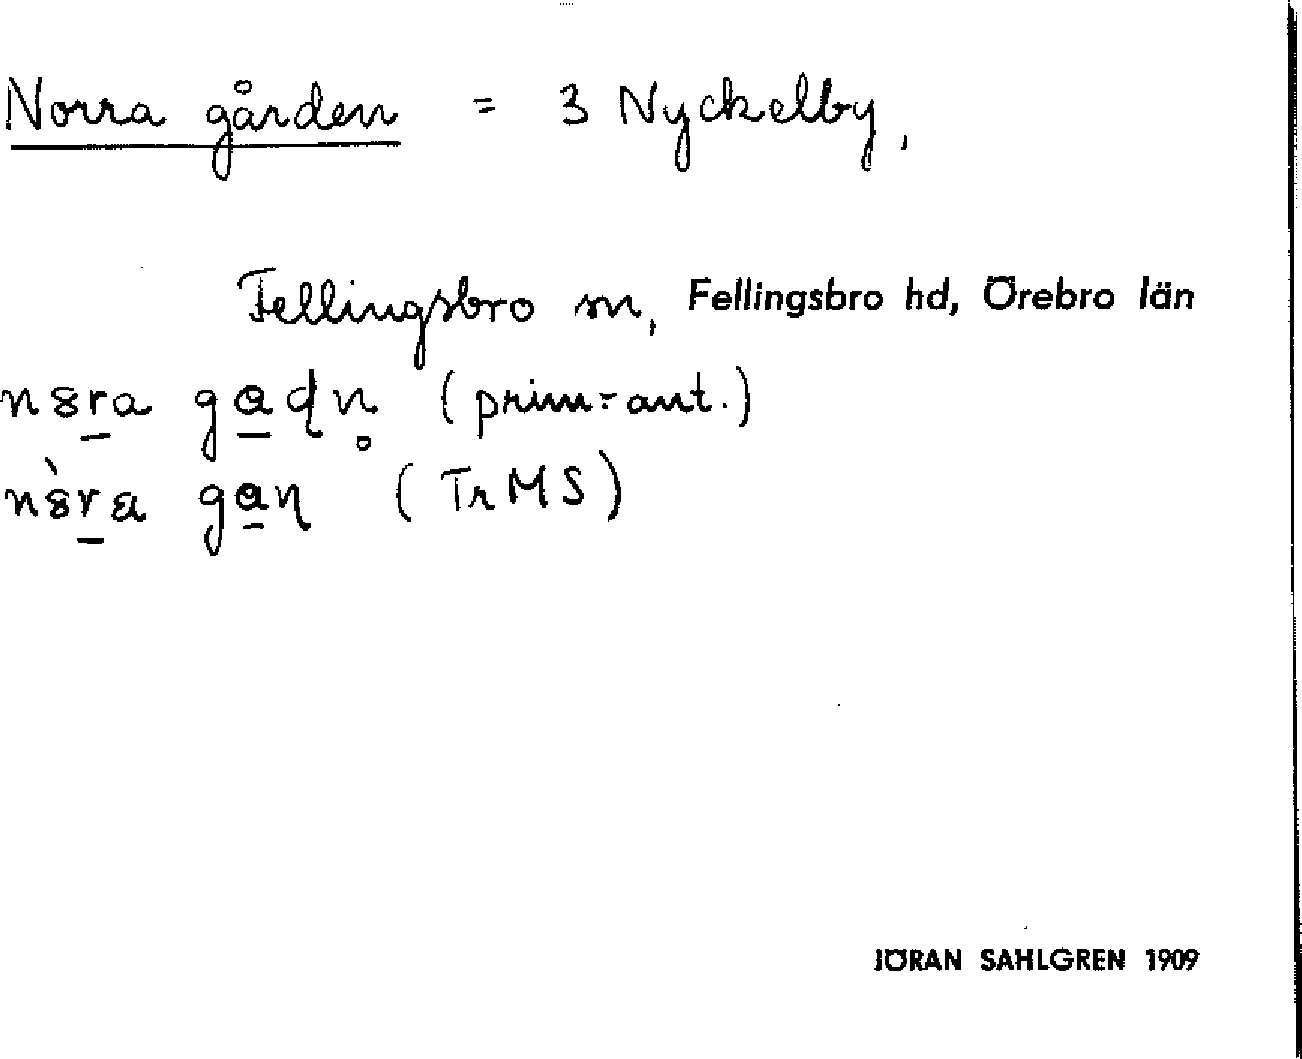 Norra gården = 3 Nyckelby,
Fellingsbro sn, Fellingsbro hd, Örebro län
(prim-ant.)
(TrMS)
JÖRAN SAHLGREN 1909